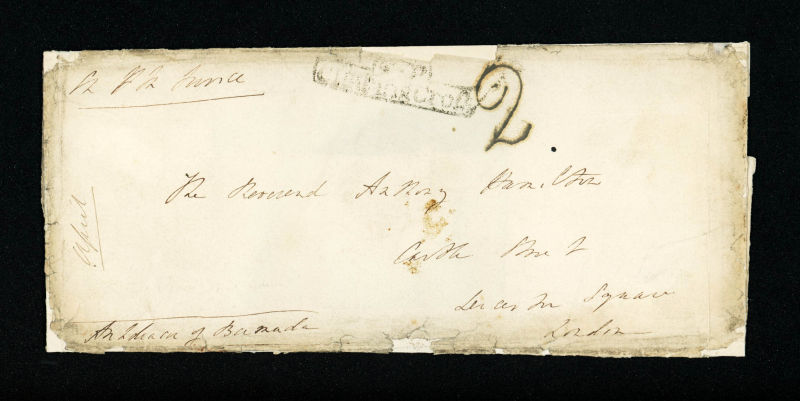 Service
2
The Reverend Anthony Hamilton
Castle Street
Leicester Square
London
April
Archdeacon of Bermuda